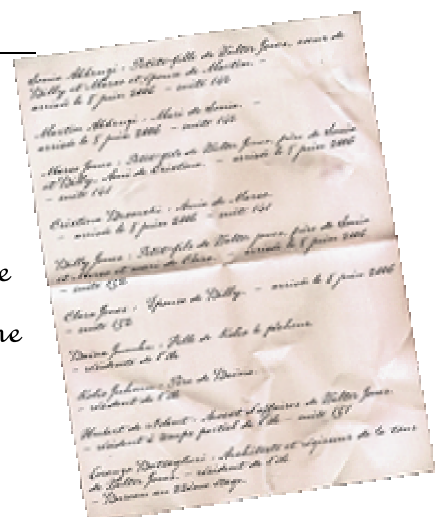 Sonia Abbruzi : Petite-fille de Walter Jones, soeur de
Willy et Marco et épouse de Martin. -
arrivée le 5 juin 2006 - suite 142
Martin Abbruzi : Mari de Sonia. -
arrivée le 5 juin 2006 - suite 142
Marco Jones : Petit-fils de Walter Jones, frère de Sonia
et Willy. Ami de Cristina. - arrivée le 5 juin 2006
- suite 141
Cristina : Amie de Marco.
- arrivée le 5 juin 2006 - suite 141
Willy Jones : Petit-fils de Walter Jones, frère de Sonia
et Marco et mari de Clara. - arrivée le 5 juin 2006
- suite 152
Clara Jones : Épouse de Willy. - arrivée le 5 juin 2006
- suite 152
: Fille de le pêcheur
- résidente de l'île
: Père de
- résident de l'île
Hubert de : Avocat d'affaires de Walter Jones.
- résident à temps partiel de l'île - suite 151
Lorenzo : Architecte et régisseur de la tour
de Walter Jones. - résident de l'île
- étage.
e
ne